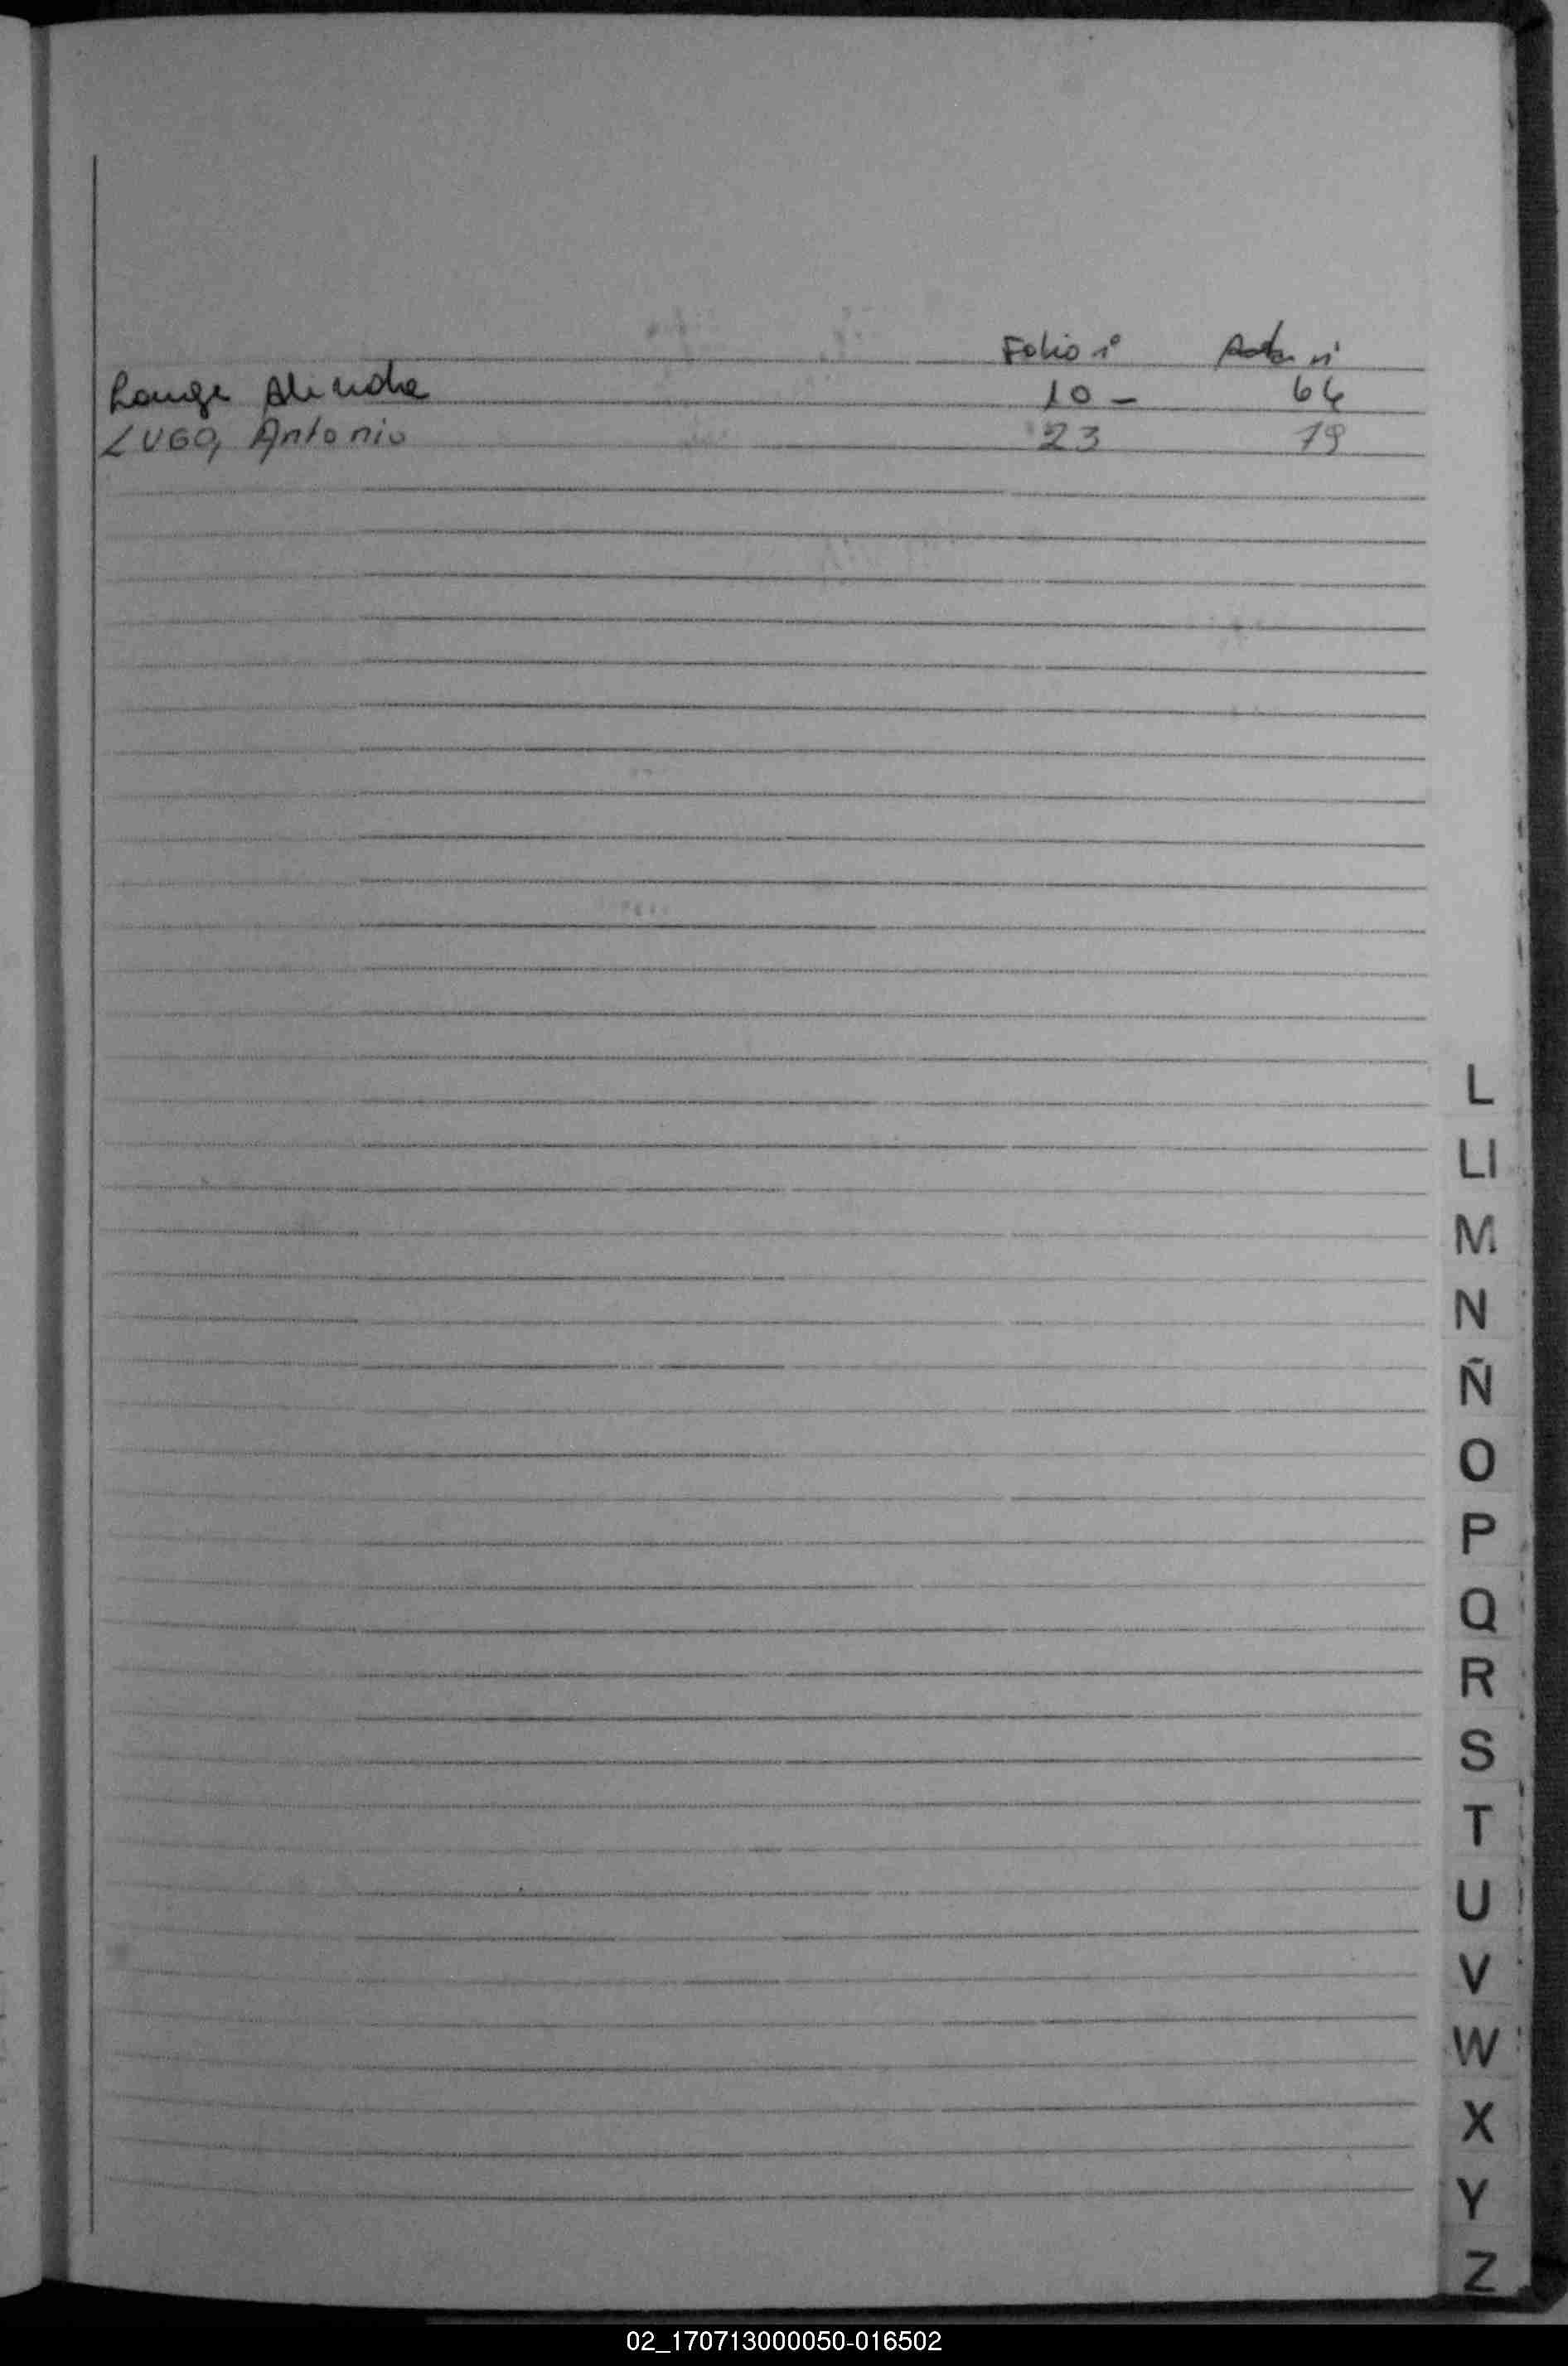 Folio nº Acta nº
Lange 10 - 64
LUGO, Antonio 23 79
L
Ll
M
N
Ñ
O
P
Q
R
S
T
U
V
W
X
Y
Z
02_170713000050-016502